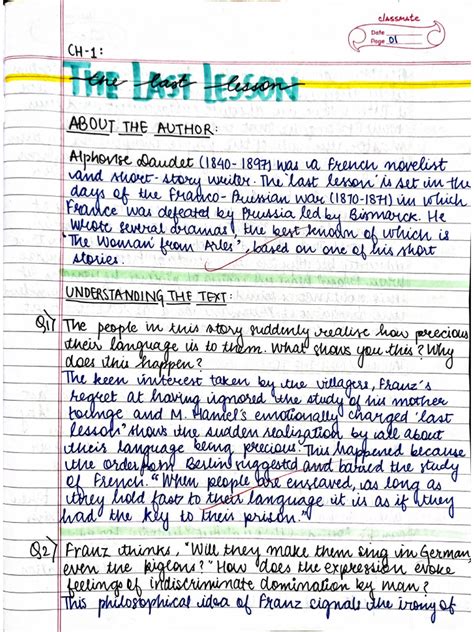 classmate
Date
Page 01
CH-1:
THE LAST LESSON
the last lesson
ABOUT THE AUTHOR:
Alphonse Daudet (1840-1897) was a French novelist
and short-story writer. The 'last lesson' is set in the
days of the Franco-Prussian War (1870-1871) in which
France was defeated by Prussia led by Bismarck. He
wrote several dramas, the best known of which is
"The Woman from Arles", based on one of his short
stories.
UNDERSTANDING THE TEXT:
Q1) The people in this story suddenly realise how precious
their language is to them. What shows you this? Why
does this happen?
The keen interest taken by the villagers, Franz's
regret at having ignored the study of his mother
tounge and M. Hamel's emotionally charged 'last
lesson' shows the sudden realization by all about
their language being precious. This happened because
the order from Berlin suggestd and barred the study
of French. "When people are enslaved, as long as
they hold fast to their language it is as if they
had the key to their prison."
Q2) Franz thinks, "Will they make them sing in German,
even the pigeons?" How does the expression evoke
feelings of indiscriminate domination by man?
This philosophical idea of Franz signals the irony of